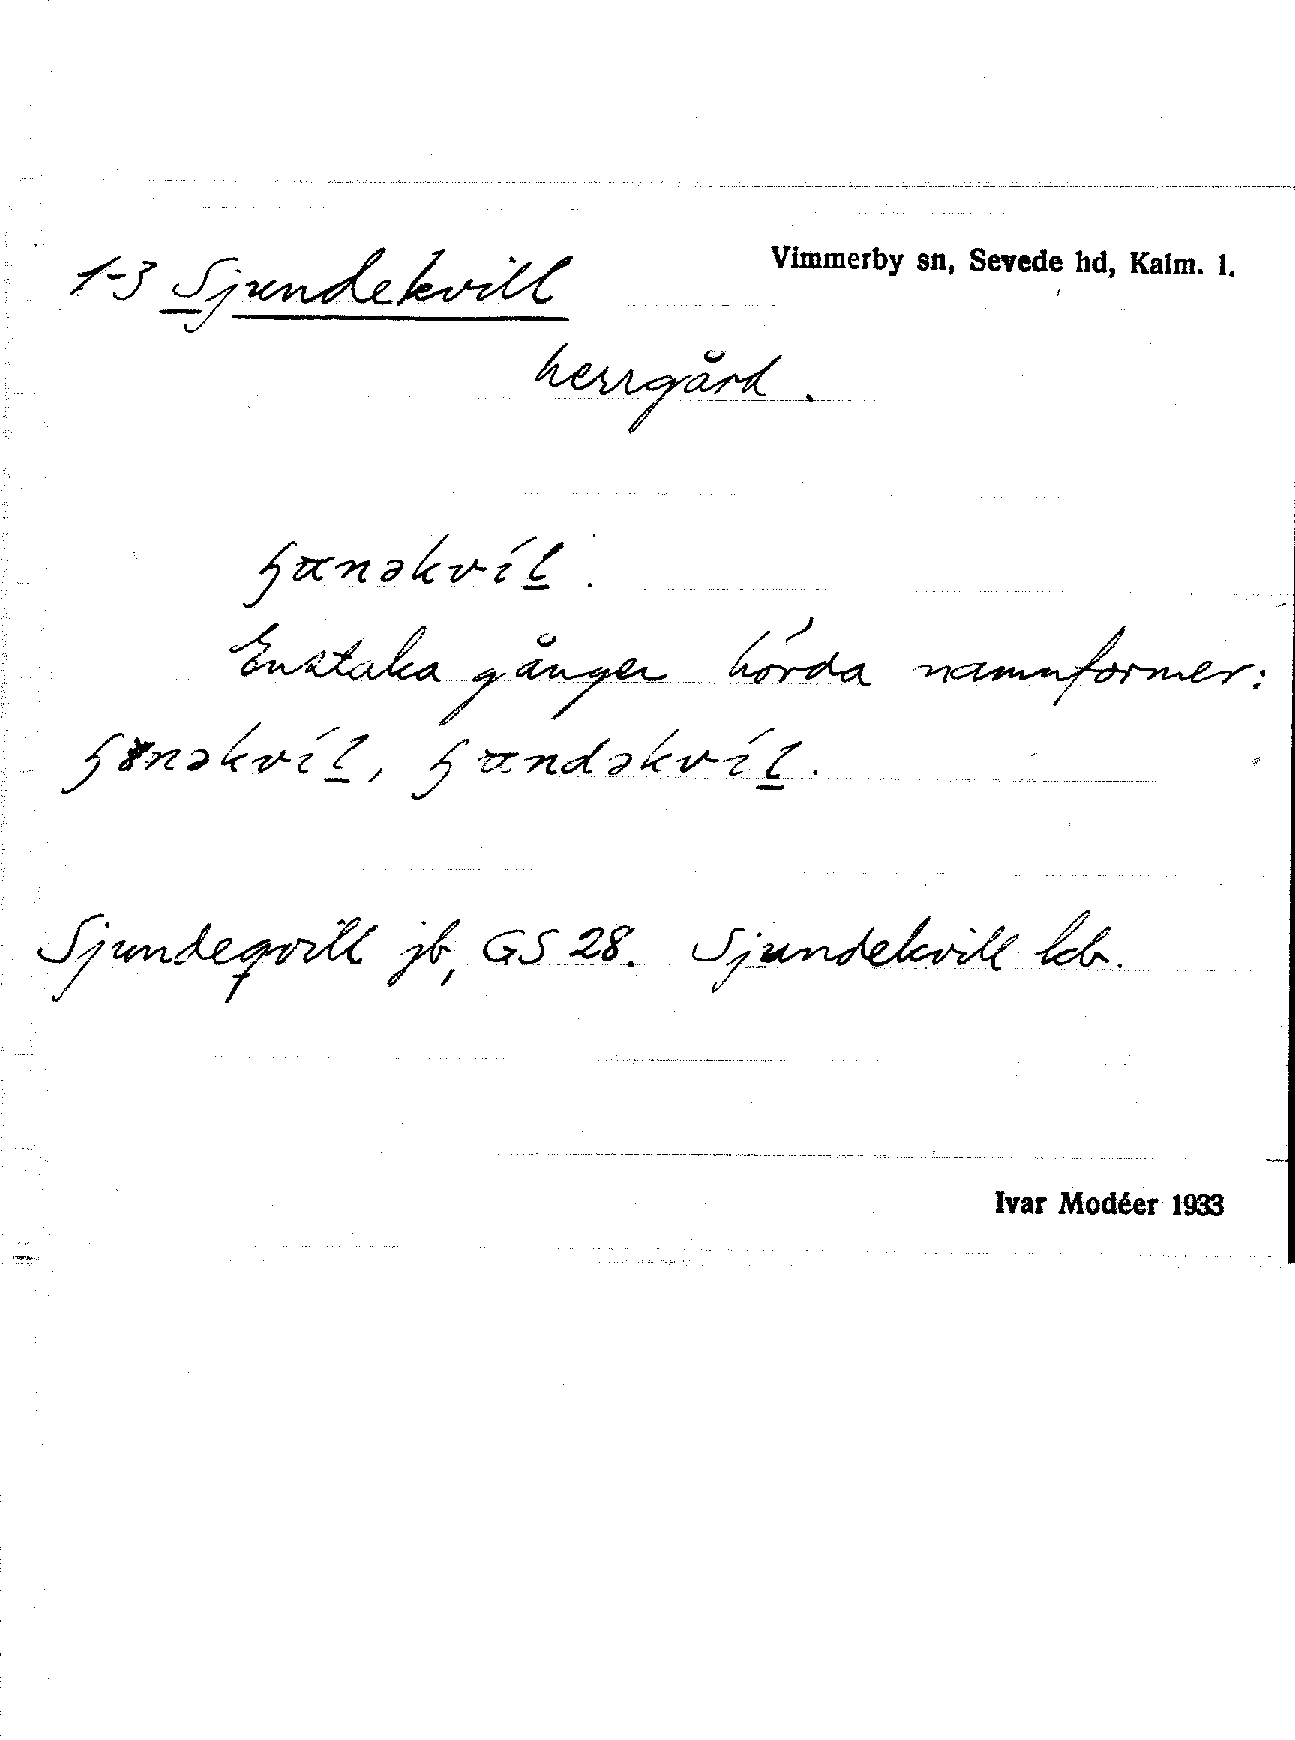 Vimmerby sn, Sevede hd, Kalm. l.
1-3 Sjundekvill
herrgård.
ɧɯnəkvíl.
Enstaka gånger hörda namnformer:
ɧɤnəkvíl, ɧɯndəkvíl.
Sjundeqvill jb, GS 28. Sjundekvill kb.
Ivar Modéer 1933